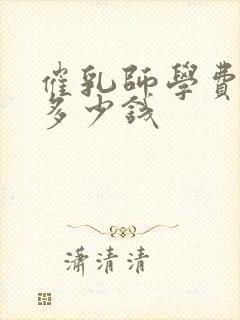 催乳師學費
多少錢
潇清清